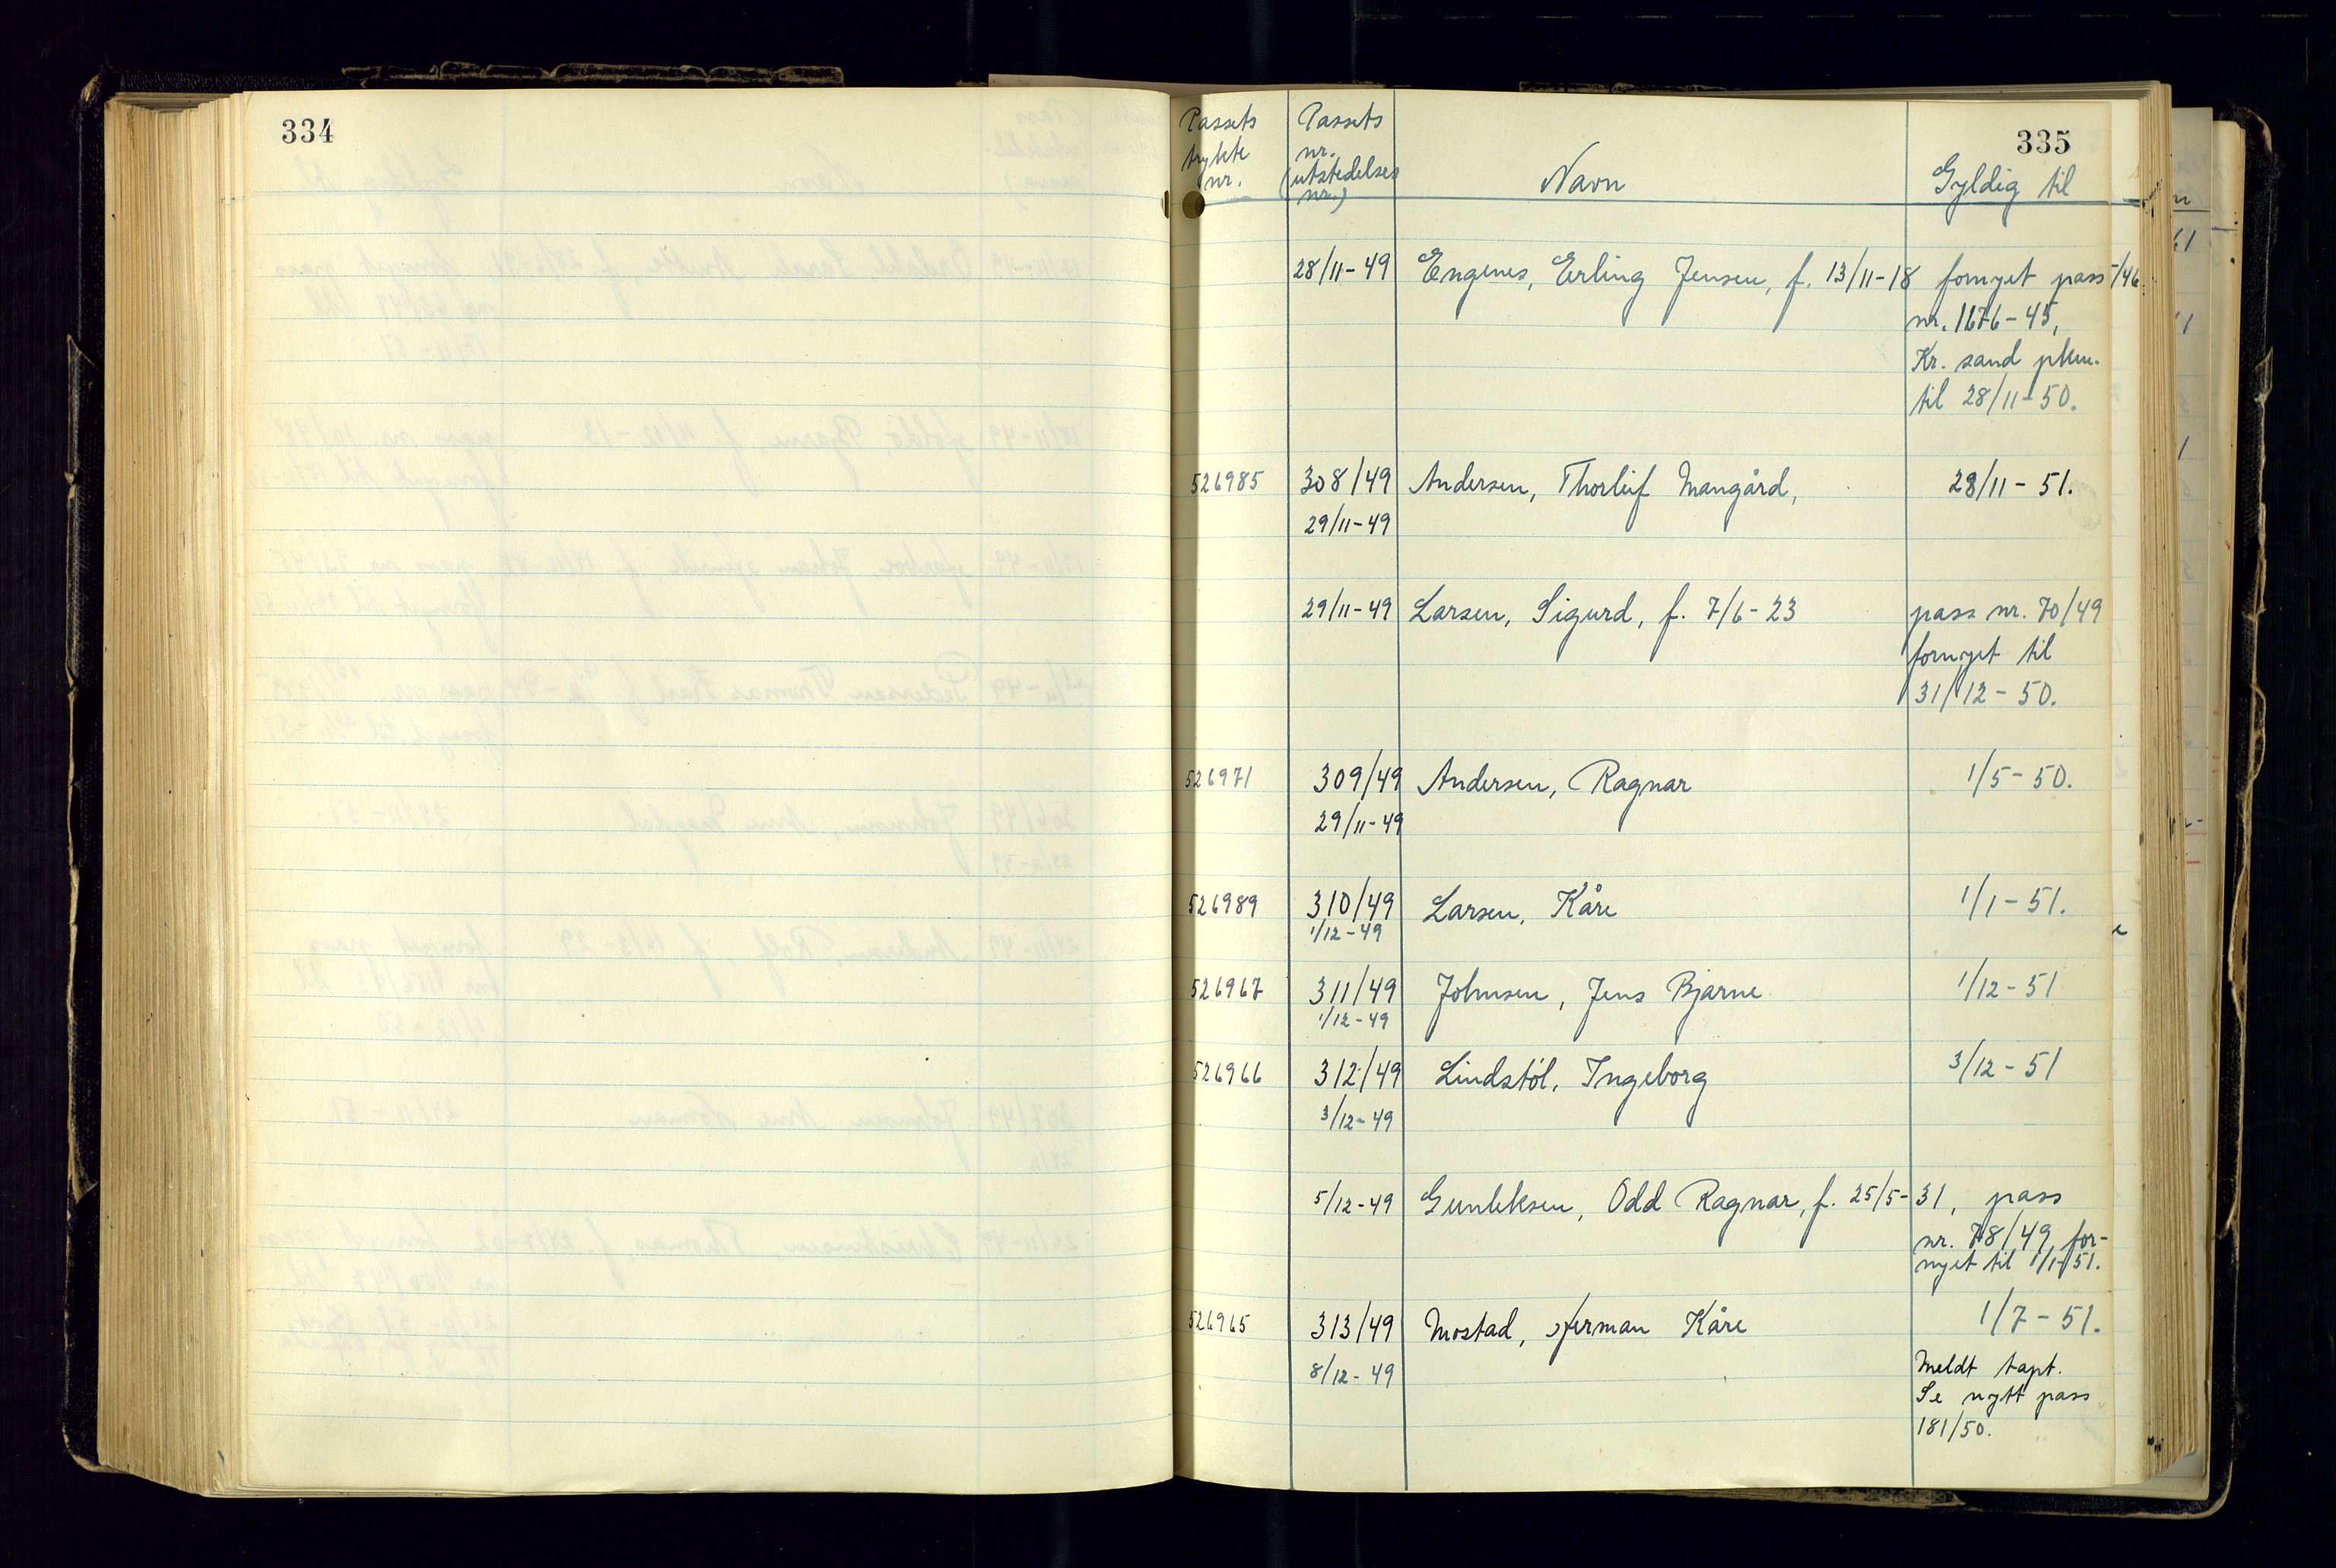 334
335
Passets trykte nr.
Passets nr. (utstedelses nr.)
Navn
Gyldig til
28/11-49 Engenes, Erling Jensen, f. 13/11-18 fornyet pass
nr. 1676-45,
Kr. sand pkm.
til 28/11-50.
526985 308/49 Andersen, Thorleif Mangård, 28/11-51.
29/11-49
29/11-49 Larsen, Sigurd, f. 7/6-23 pass nr. 70/49
fornyet til
31/12-50.
526971 309/49 Andersen, Ragnar 1/5-50.
29/11-49
526989 310/49 Larsen, Kåre 1/1-51.
1/12-49
526967 311/49 Johnsen, Jens Bjarne 1/12-51
1/12-49
526966 312/49 Lindstöl, Ingeborg 3/12-51
3/12-49
5/12-49 Gunleksen, Odd Ragnar, f. 25/5-31, pass
nr. 78/49 for-
nyet til 1/1-51.
526965 313/49 Mostad, Herman Kåre 1/7-51.
8/12-49
Meldt tapt.
Se nytt pass
181/50.